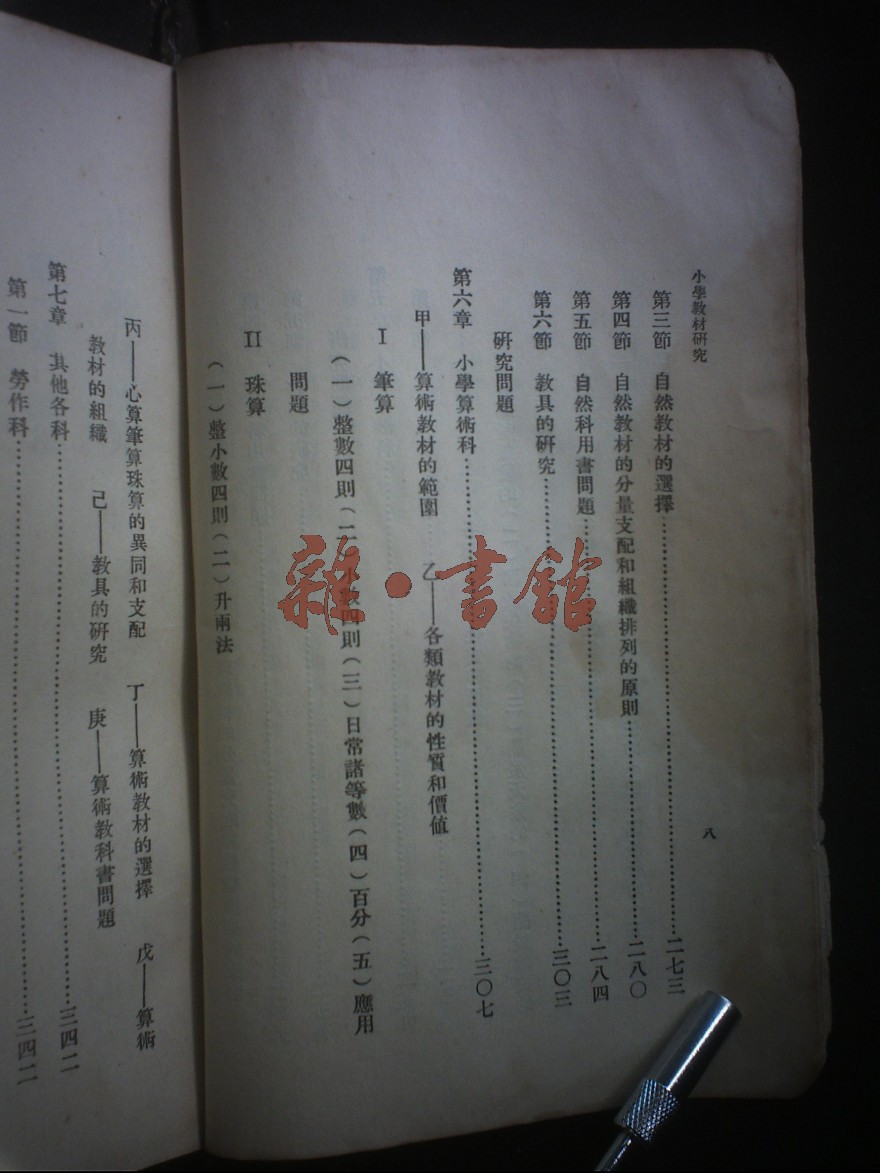 小學教材研究
八
第三節 自然教材的選擇……二七三
第四節 自然教材的分量支配和組織排列的原則……二八〇
第五節 自然科用書問題……二八四
第六節 教具的研究……三〇三
研究問題
第六章 小學算術科……三〇七
甲——算術教材的範圍 乙——各類教材的性質和價值
I 筆算
(一)整數四則(二)小數四則(三)日常諸等數(四)百分(五)應用
問題
II 珠算
(一)整小數四則(二)斤兩法
丙——心算筆算珠算的異同和支配 丁——算術教材的選擇 戊——算術
教材的組織 己——教具的研究 庚——算術教科書問題
第七章 其他各科……三四二
第一節 勞作科……三四二
雜·書館